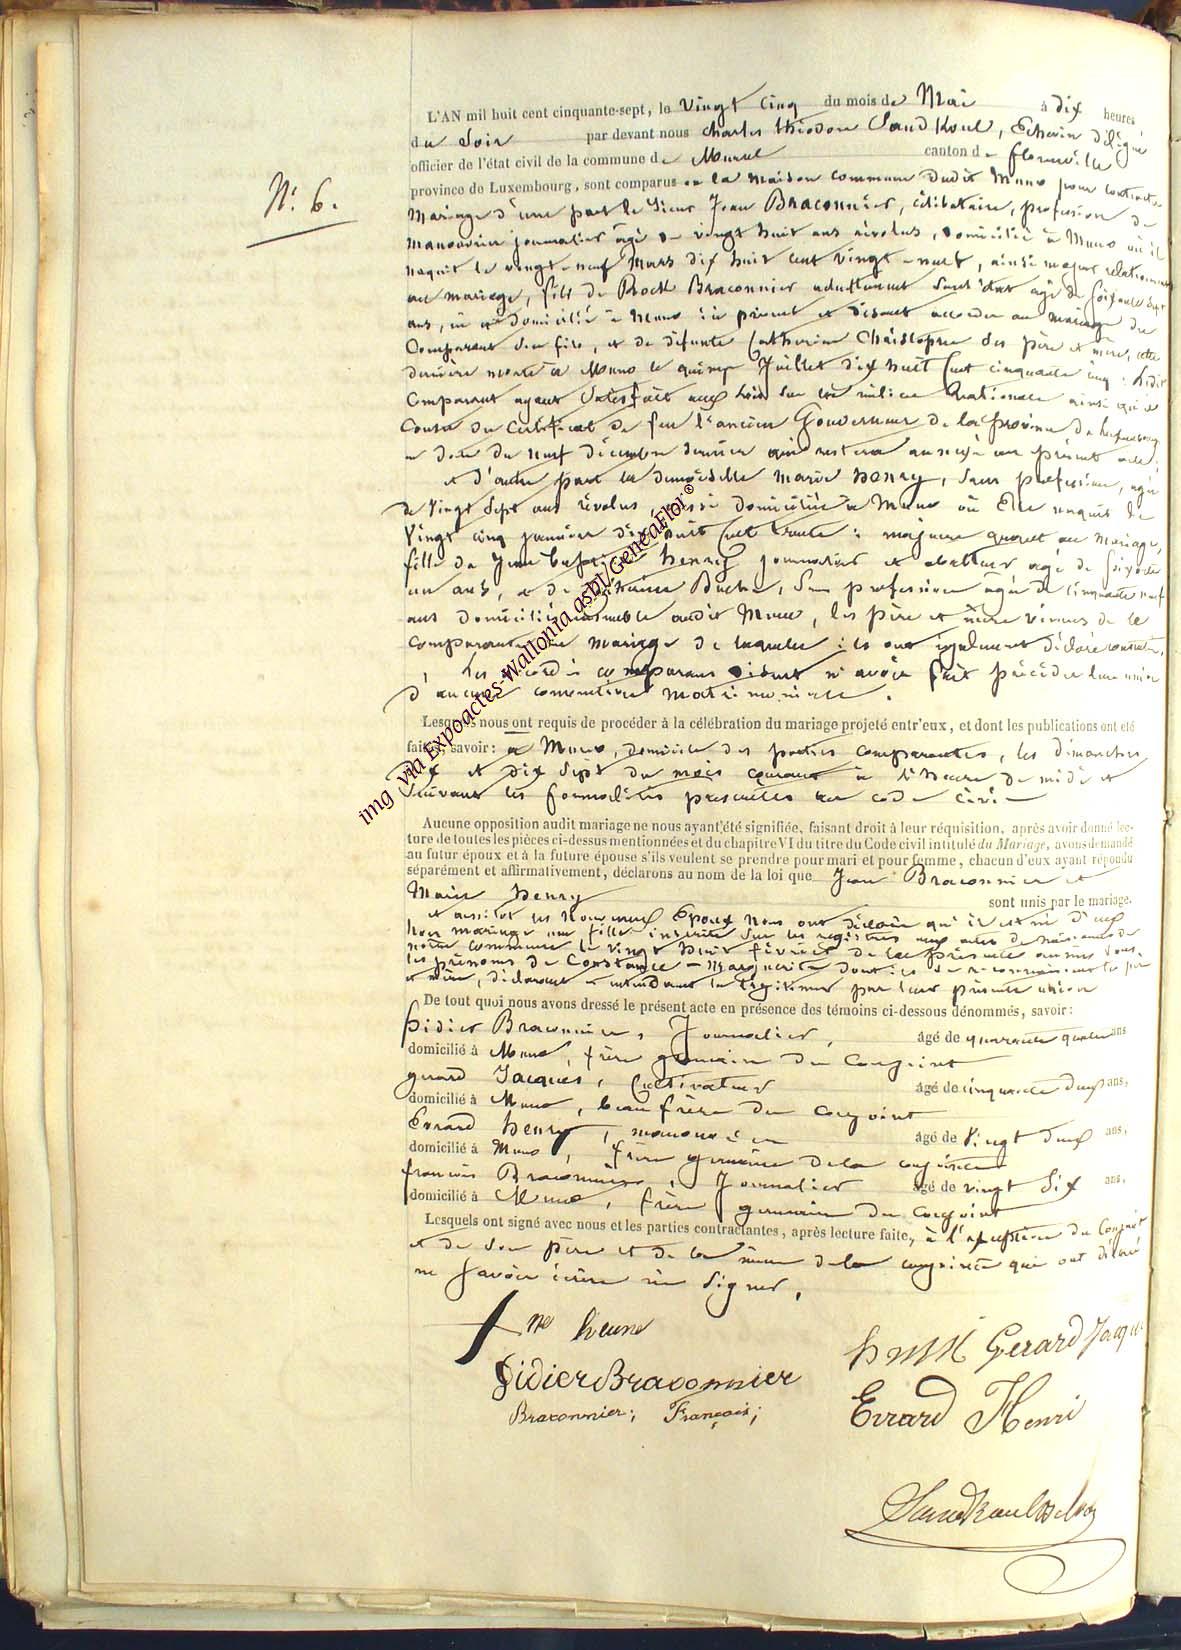 N.° 6.
L'AN mil huit cent cinquante-sept, le vingt cinq du mois de Mai à dix heures
du Soir par devant nous Charles théodore Echevin délégué
officier de l'état civil de la commune de Muno canton de florenville
province de Luxembourg, sont comparus en la maison commune dudit Muno pour contracter
Mariage d'une part le Sieur Jean Braconnier, célibataire, profession de
manouvrier journalier âgé de vingt huit ans révolus, domicilié à Muno où il
naquit le vingt-neuf Mars dix huit cent vingt-neuf, ainsi majeur relativement
au mariage, fils de Rock Braconnier âgé de soixante sept
ans, domicilié à Muno ici présent et disant accéder au mariage du
Comparant son fils, et de défunte Catherine Christophe ses père et mère, cette
dernière morte à Muno le quinze Juillet dix huit Cent cinquante cinq : ledit
Comparant ayant satisfait aux lois sur la milice Nationale ainsi qu'il
Conste du Certificat de feu l'ancien Gouverneur de la province de Luxembourg
en date du neuf décembre dernier qui restera annexé au présent acte;
et d'autre part la demoiselle Marie henry, Sans profession, âgée
de Vingt Sept ans révolus aussi domiciliée à Muno où Elle naquit le
Vingt cinq janvier dix huit cent trente : majeure quant au mariage,
fille de Jean henry journalier et âgé de soixante
un ans, et de Sans profession âgée de cinquante neuf
ans domiciliés ensemble audit Muno, les père et mère de la
comparante au mariage de laquelle ils ont également déclaré consentir,
Les comparans disent n'avoir fait précéder leur union
d'aucune convention matrimoniale.
Lesquels nous ont requis de procéder à la célébration du mariage projeté entr'eux, et dont les publications ont été
faites, savoir : à Muno, domicile des parties comparantes, les dimanches
dix et dix Sept du mois courant à l'heure de midi et
Suivant les formalités prescrites au code civil
Aucune opposition audit mariage ne nous ayant été signifiée, faisant droit à leur réquisition, après avoir donné lec-
ture de toutes les pièces ci-dessus mentionnées et du chapitre VI du titre du Code civil intitulé du Mariage, avons demandé
au futur époux et à la future épouse s'ils veulent se prendre pour mari et pour femme, chacun d'eux ayant répondu
séparément et affirmativement, déclarons au nom de la loi que Jean Braconnier et
Marie henry sont unis par le mariage.
et aussitôt les Nouveaux Epoux Nous ont déclaré qu'il est né d'eux
hors mariage une fille inscrite sur les registres aux actes de naissances de
notre commune le vingt huit février de la présente année sous
les prénoms de Constance - Marguerite dont ils se reconnaissent les père
et mère, déclarant la légitimer par leur présente union
De tout quoi nous avons dressé le présent acte en présence des témoins ci-dessous dénommés, savoir :
Didier Braconnier, Journalier, âgé de quarante quatre ans
domicilié à Muno, frère germain du Conjoint
gerard Jacques, Cultivateur âgé de cinquante deux ans,
domicilié à Muno, beau frère du conjoint
Evrard henry, manouvrier âgé de Vingt deux ans,
domicilié à Muno, frère germain de la conjointe
françois Braconnier, Journalier âgé de vingt Six ans,
domicilié à Muno, frère germain du conjoint
Lesquels ont signé avec nous et les parties contractantes, après lecture faite, à l'exception du Conjoint
et de son père et de la mère de la conjointe qui ont déclaré
ne Savoir écrire ni Signer,
Didier Braconnier
Gerard Jacques
Braconnier; François;
Evrard Henri
img via Expoactes-Wallonia asbl/GeneaFlor ©